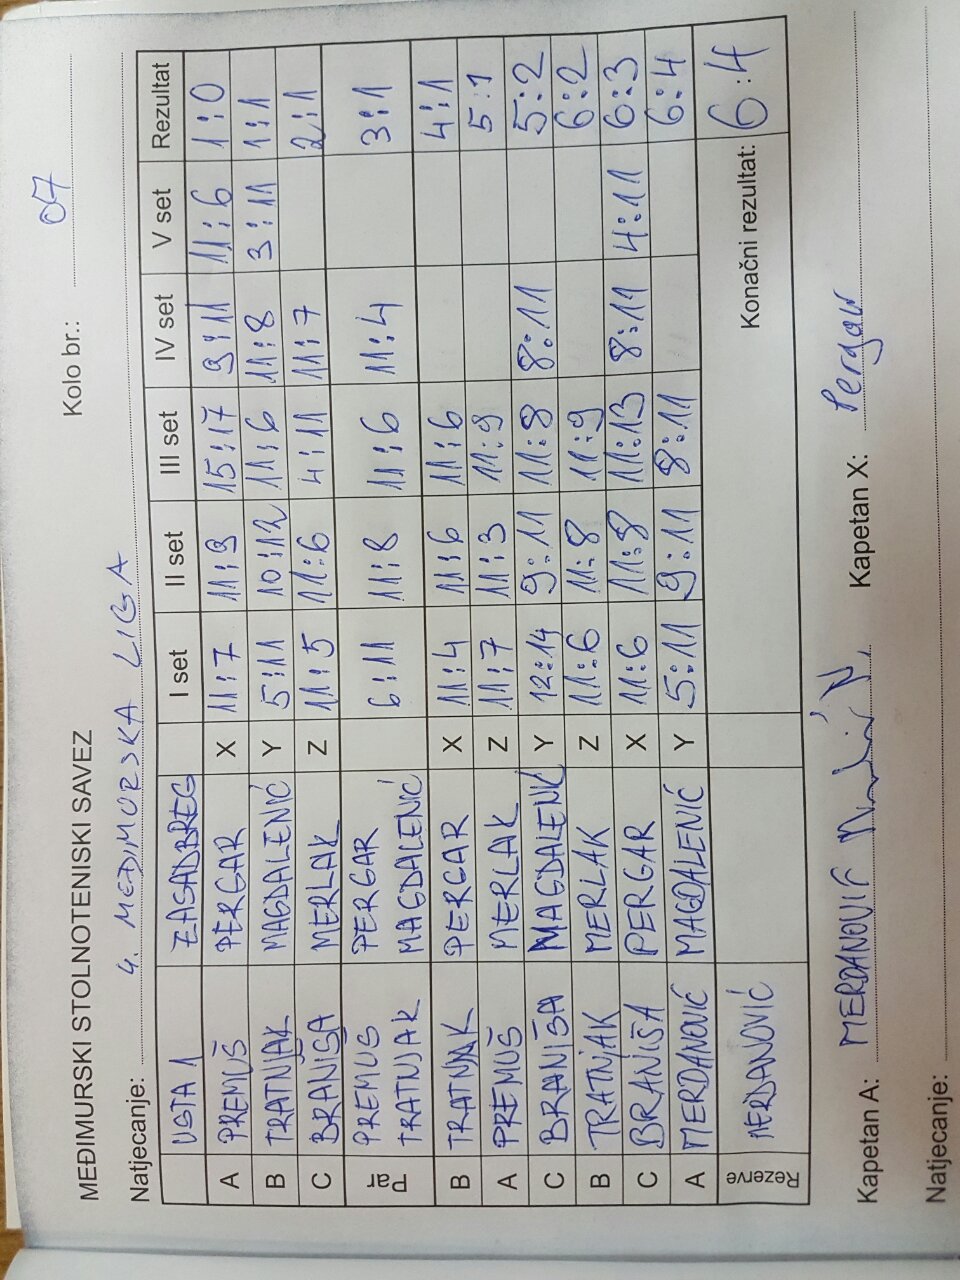 MEĐIMURSKI STOLNOTENISKI SAVEZ
Natjecanje: 4. MEĐIMURSKA LIGA Kolo br.: 07
UGTA 1 ZASADBREG I set II set III set IV set V set Rezultat
A PREMUŠ PERGAR X 11:7 11:9 15:17 9:11 11:6 1:0
B TRATNJAK MAGDALENIĆ Y 5:11 10:12 11:6 11:8 3:11 1:1
C BRANIŠA MERLAK Z 11:5 11:6 4:11 11:7 2:1
Par PREMUŠ PERGAR 6:11 11:8 11:6 11:4 3:1
TRATNJAK MAGDALENIĆ
B TRATNJAK PERGAR X 11:4 11:6 11:6 4:1
A PREMUŠ MERLAK Z 11:7 11:3 11:9 5:1
C BRANIŠA MAGDALENIĆ Y 12:14 9:11 11:8 8:11 5:2
B TRATNJAK MERLAK Z 11:6 11:8 11:9 6:2
C BRANIŠA PERGAR X 11:6 11:8 11:13 8:11 4:11 6:3
A MERDANOVIĆ MAGDALENIĆ Y 5:11 9:11 8:11 6:4
Rezerve MERDANOVIĆ Konačni rezultat: 6:4
Kapetan A: MERDANOVIĆ Kapetan X: Pergar
Natjecanje: